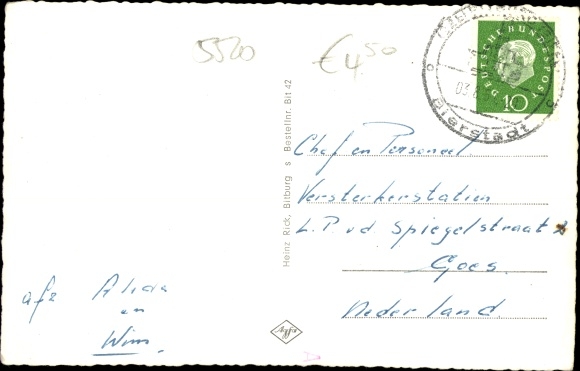 5520
€ 4,50
DEUTSCHE BUNDESPOST
10
Bierstadt
Heinz Rick, Bitburg s Bestellnr. Bit 42
Chef en Personeel
Versterkerstation
L.P. vd Spiegelstraat
Goes.
Nederland
afz Alida
en
Wim.
Agfa